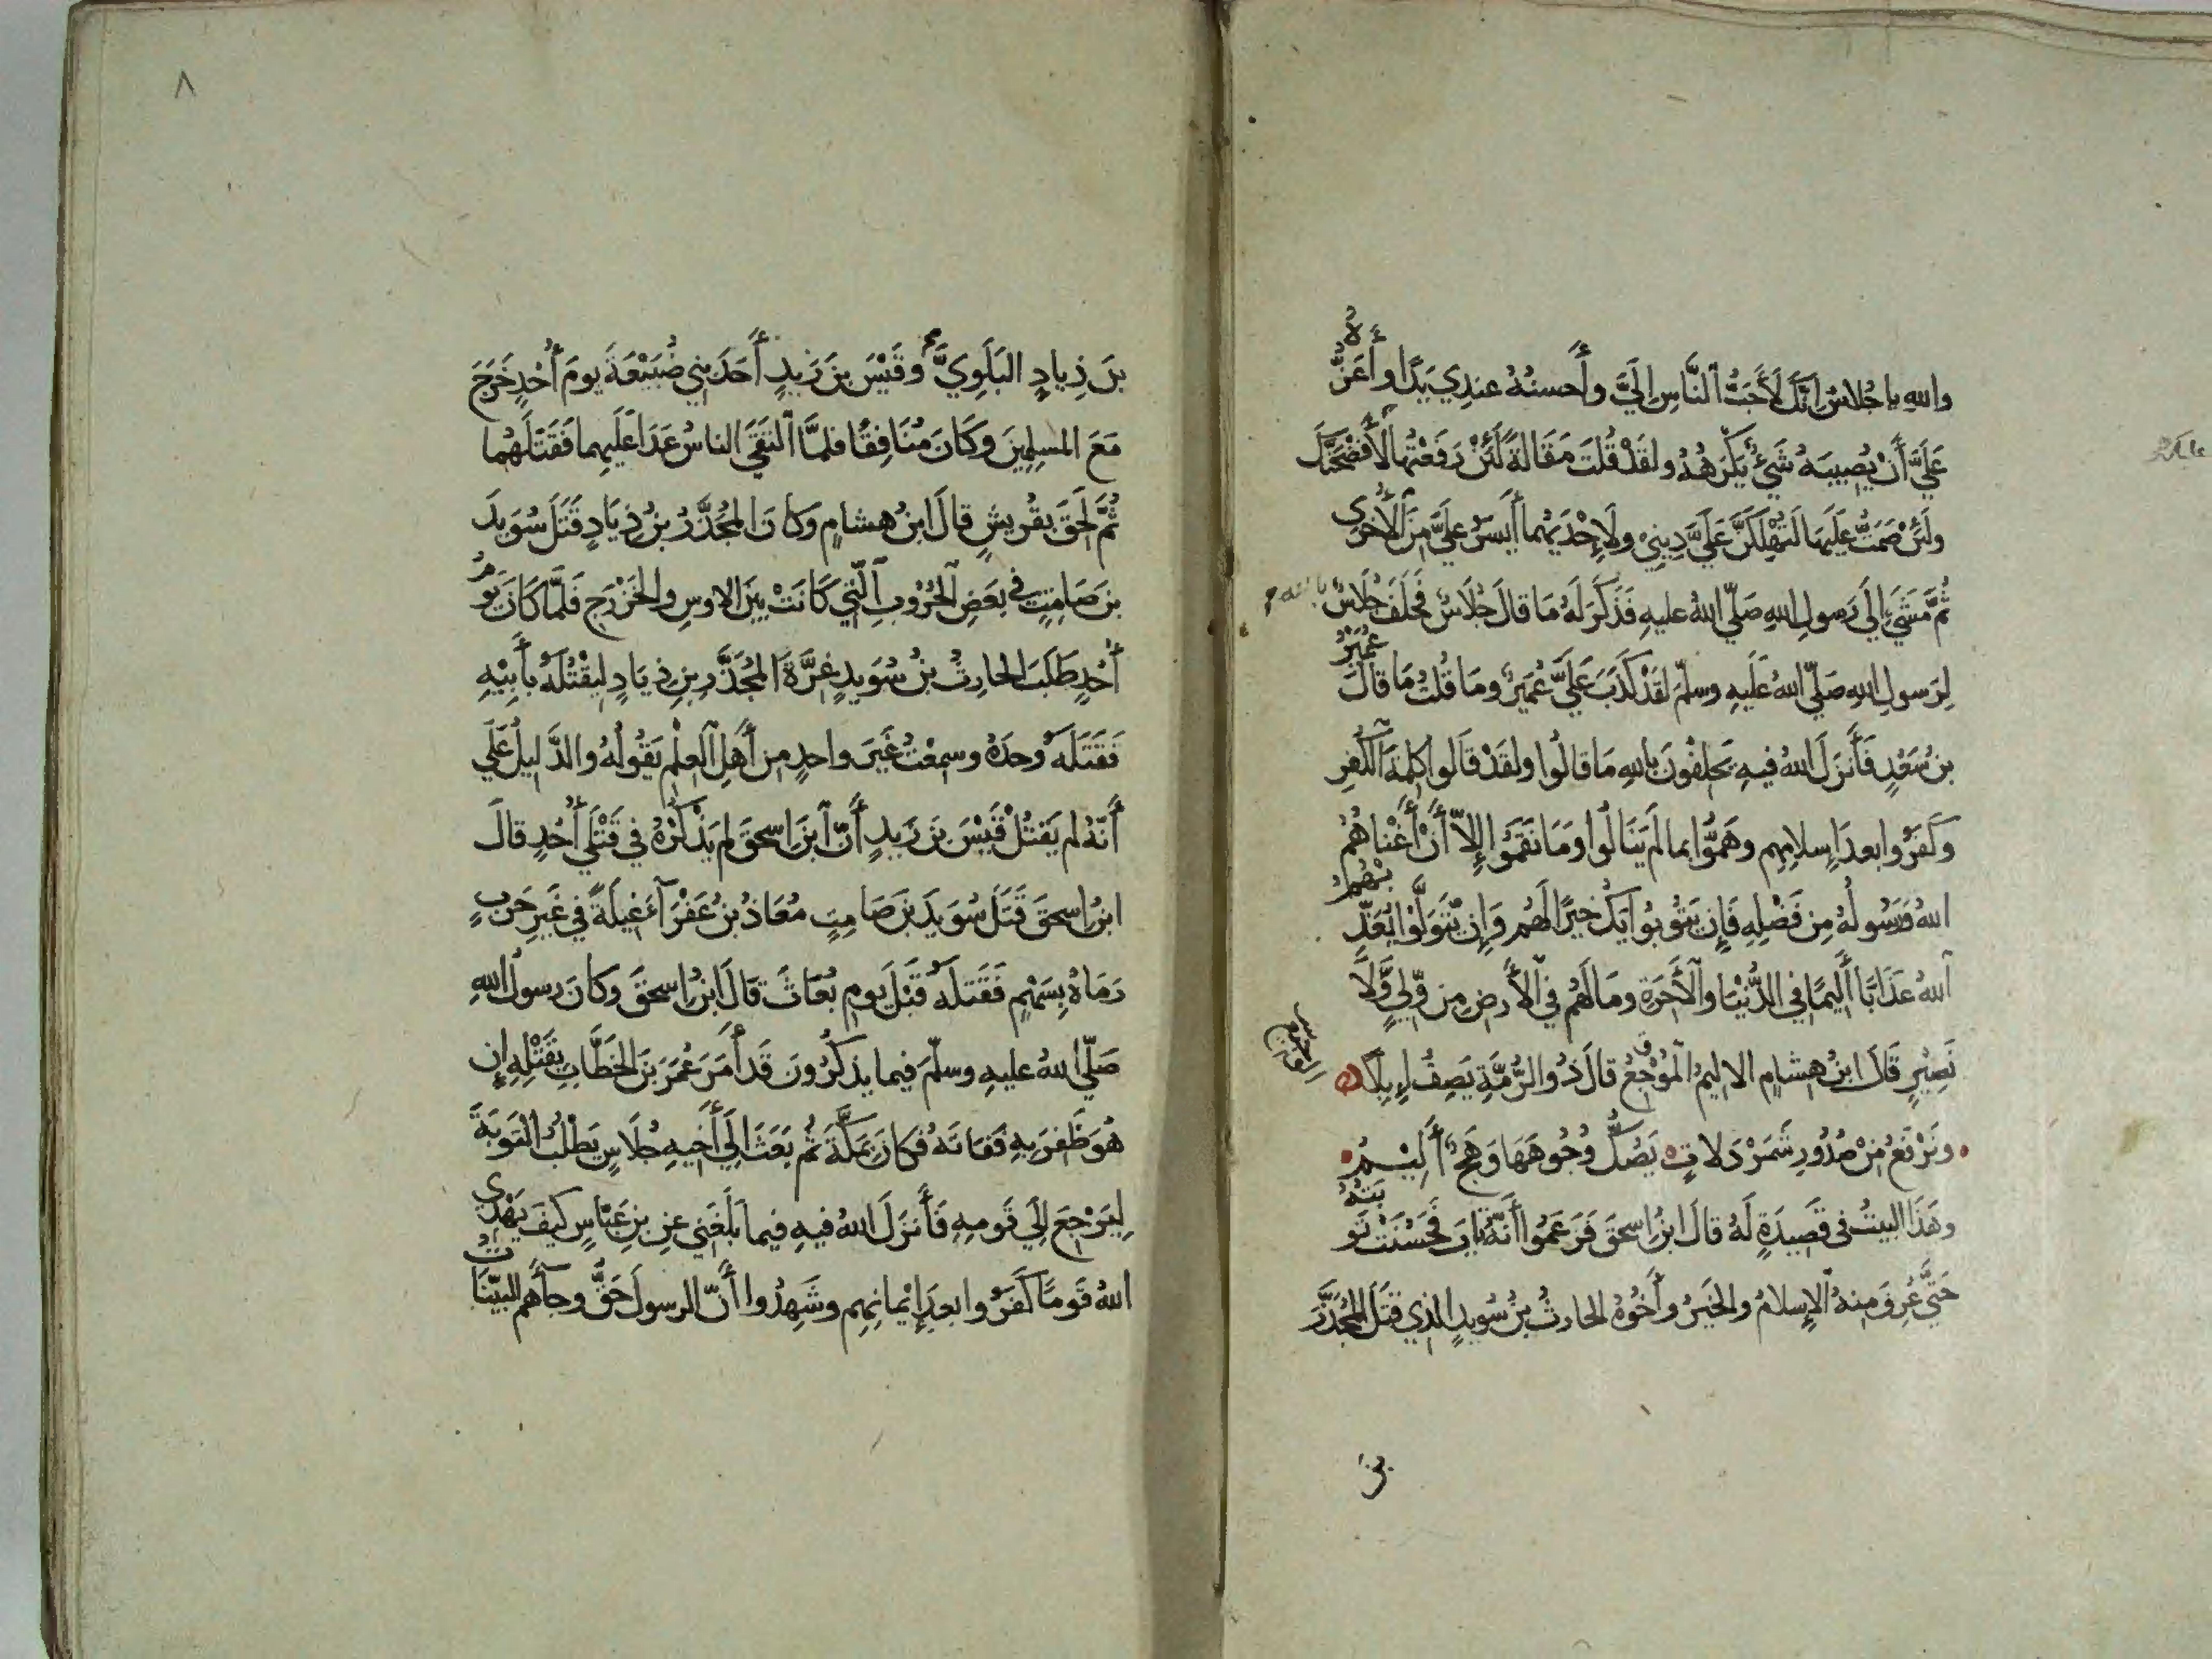 والله يا جُلاسُ إنَّكَ لَأَحَبُّ ٱلنَّاسِ إلَيَّ وأَحسنُهُ عندِي يَدًا وأَعَزُّهُ
عَلَيَّ أَنْ يُصِيبَهُ شَيْءٌ يَكْرَهُهُ ولقَدْ قُلتَ مَقَالَةً لَئِنْ رَفَعْتُهَا لَأَفْضَحَنَّكَ
ولَئِنْ صَمَتُّ عَلَيهَا لَتُهْلِكَنَّ عَلَيَّ دِينِي ولَإِحْدَيهُما أَيسَرُ عَلَيَّ مِنَ ٱلأُخرَى
ثُمَّ مَشَي إلَي رَسولِ اللهِ صَلّي اللهُ عليهِ فَذَكَرَ لَهُ مَا قالَ جُلَاسٌ فَحَلَفَ جُلَاسٌ بالله
لِرَسولِ اللهِ صَلّي اللهُ عَلَيهِ وسلّمَ لقَدْ كَذَبَ عَلَيَّ عُمَيرٌ ومَا قُلتُ مَا قالَ عُمَيْرُ
بنُ سَعْدٍ فَأَنزَلَ اللهُ فيهِ يَحلِفُونَ باللهِ مَا قالُوا ولقَدْ قَالُوا كَلِمَةَ ٱلكُفرِ
وكَفَرُوا بعدَ إسلامِهِم وهَمُّوا بما لَم يَنَالُوا ومَا نَقَمُوا إلّا أَنْ أَغْناهُمُ
اللهُ ورَسُولُهُ مِن فَضْلِهِ فَإِن يَتُوبُوا يَكُ خيرًا لَهُم وَإِن يَّتَوَلَّوْا يُعَذِّبْهُمُ
ٱللهُ عَذَابًا أَلِيمًا فِي الدُّنْيَا وٱلأَخِرَةِ ومَا لَهُم فِي ٱلأَرضِ مِن وَّلِيٍّ وَّلَا
نَصِيْرٍ قَالَ ابنُ هِشامٍ الاليمُ ٱلمُوْجِعُ قالَ ذُو الرُّمَّةِ يَصِفُ إبِلًا
وتَرْفَعُ مِنْ صُدُورِ شَمَرْدَلاتٍ يَصُكُّ وُجُوهَهَا وَهَجٌ أَلِيْمُ
وهَذَا البيتُ في قصِيدَةٍ لَهُ قالَ ابنُ اسحقَ فَزَعَمُوا أَنَّهُ تابَ فَحَسُنَتْ تَوبَتُهُ
حَتَّي عُرِفَ مِنهُ ٱلإسلامُ والخيرُ وأَخُوهُ الحارِثُ بنُ سُوَيدٍ الذي قَتَلَ المُجَذَّرَ
بنَ
٨
بنَ ذِيادٍ البَلَوِيَّ وقَيْسَ بنَ زَيدٍ أَحَدَ بَنِي ضُبَيْعَةَ يومَ أُحُدٍ خَرَجَ
مَعَ المسلِمِينَ وكَانَ مُنَافِقًا فلمَّا ٱلتَقَي الناسُ عَدَا عَلَيهِما فَقَتَلَهُما
ثُمَّ لَحِقَ بقُريشٍ قالَ ابنُ هشامٍ وكانَ المُجَذَّرُ بنُ ذِيَادٍ قَتَلَ سُوَيدَ
بنَ صَامِتٍ في بعَضِ ٱلحُرُوبِ ٱلّتِي كَانَتْ بينَ الاوسِ والخَزْرَجِ فَلَمّا كَانَ يَومُ
أُحُدٍ طَلَبَ الحارِثُ بنُ سُوَيدٍ غِرَّةَ المُجَذَّرِ بنِ ذِيَادٍ لِيَقْتُلَهُ بأَبِيْهِ
فَقَتَلَهُ وحدَهُ وسمِعْتُ غَيرَ واحدٍ مِن أَهلِ ٱلعِلْمِ يَقُولُهُ والدَّليلُ عَلَي
أَنَّهُ لم يَقتُلْ قَيْسَ بنَ زَيدٍ أَنّ ٱبنَ اسحقَ لم يَذْكُرْهُ في قَتْلَي أُحُدٍ قالَ
ابنُ اسحقَ قَتَلَ سُوَيدَ بنَ صَامِتٍ مُعَاذُ بنُ عَفْرَآءَ غِيلَةً في غَيرِ حَربٍ
رَمَاهُ بِسَهْمٍ فَقَتَلَهُ قَبْلَ يومِ بُعَاثَ قالَ ابنُ اسحقَ وكَانَ رسولُ اللهِ
صَلّي اللهُ عليهِ وسلّمَ فيما يذكُرُونَ قَد أَمَرَ عُمَرَ بنَ الخَطَّابِ بِقَتْلِهِ إن
هُوَ ظَفِرَ بِهِ فَفَاتَهُ فكانَ بمَكَّةَ ثُم بَعَثَ إلَي أَخِيهِ جُلَاسٍ يَطْلُبُ التوبَةَ
لِيَرْجِعَ إلَي قَومِهِ فَأَنزَلَ اللهُ فيهِ فيما بَلَغَنِي عنِ بنِ عَبّاسٍ كيفَ يَهْدِي
اللهُ قَومًا كَفَرُوا بعدَ إيْمانِهِم وشَهِدُوا أَنَّ الرسولَ حَقٌّ وجآءَهم البيِّنَاتُ